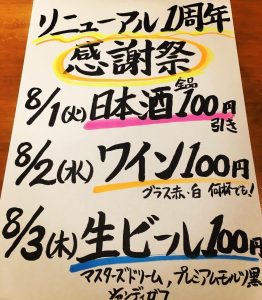 リニューアル1周年
感謝祭
8/1(火)日本酒全品100円引き
8/2(水)ワイン100円
グラス赤・白 何杯でも!
8/3(木)生ビール100円
マスターズドリーム,プレミアムモルツ黒
シャンディガフ